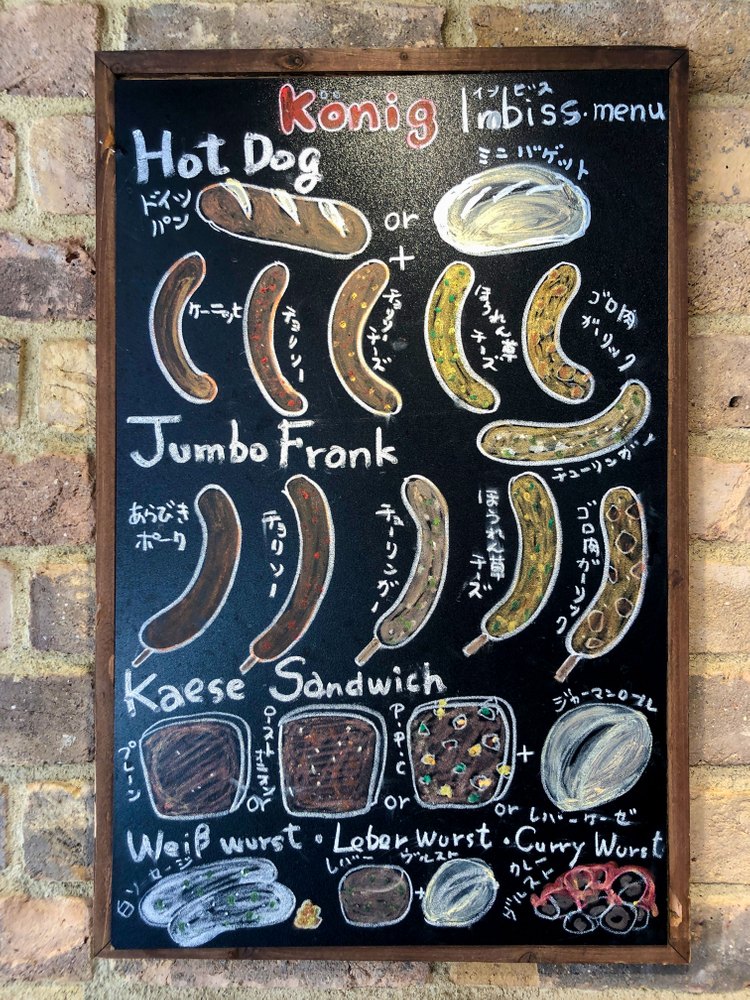 König Imbiss・menu
インビス
Hot Dog
ミニバゲット
ドイツ
パン
or
+
ケーニッヒ
チョリソー
チョリソーチーズ
ほうれん草
チーズ
ゴロ肉
ガーリック
チューリンガー
Jumbo Frank
あらびき
ポーク
チョリソー
チューリンガー
ほうれん草
チーズ
ゴロ肉ガーリック
Kaese Sandwich
プレーン
or
ロースト
P.P.C
or
+
ジャーマンロール
or レバーケーゼ
Weiß wurst・Leber Wurst・Curry Wurst
白ソーセージ
レバー ヴルスト
+
カレー
ヴルスト